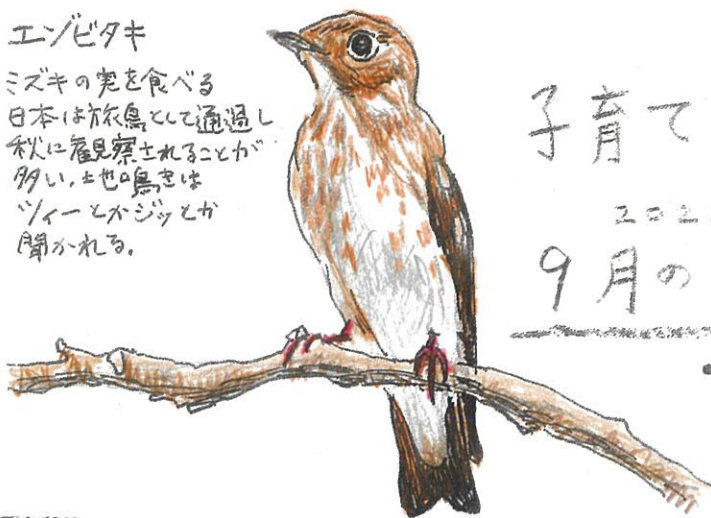 エゾビタキ
ミズキの実を食べる
日本は旅鳥として通過し
秋に観察されることが
多い。地鳴きは
ツィーとかジッとか
聞かれる。
子育て
202
9月の